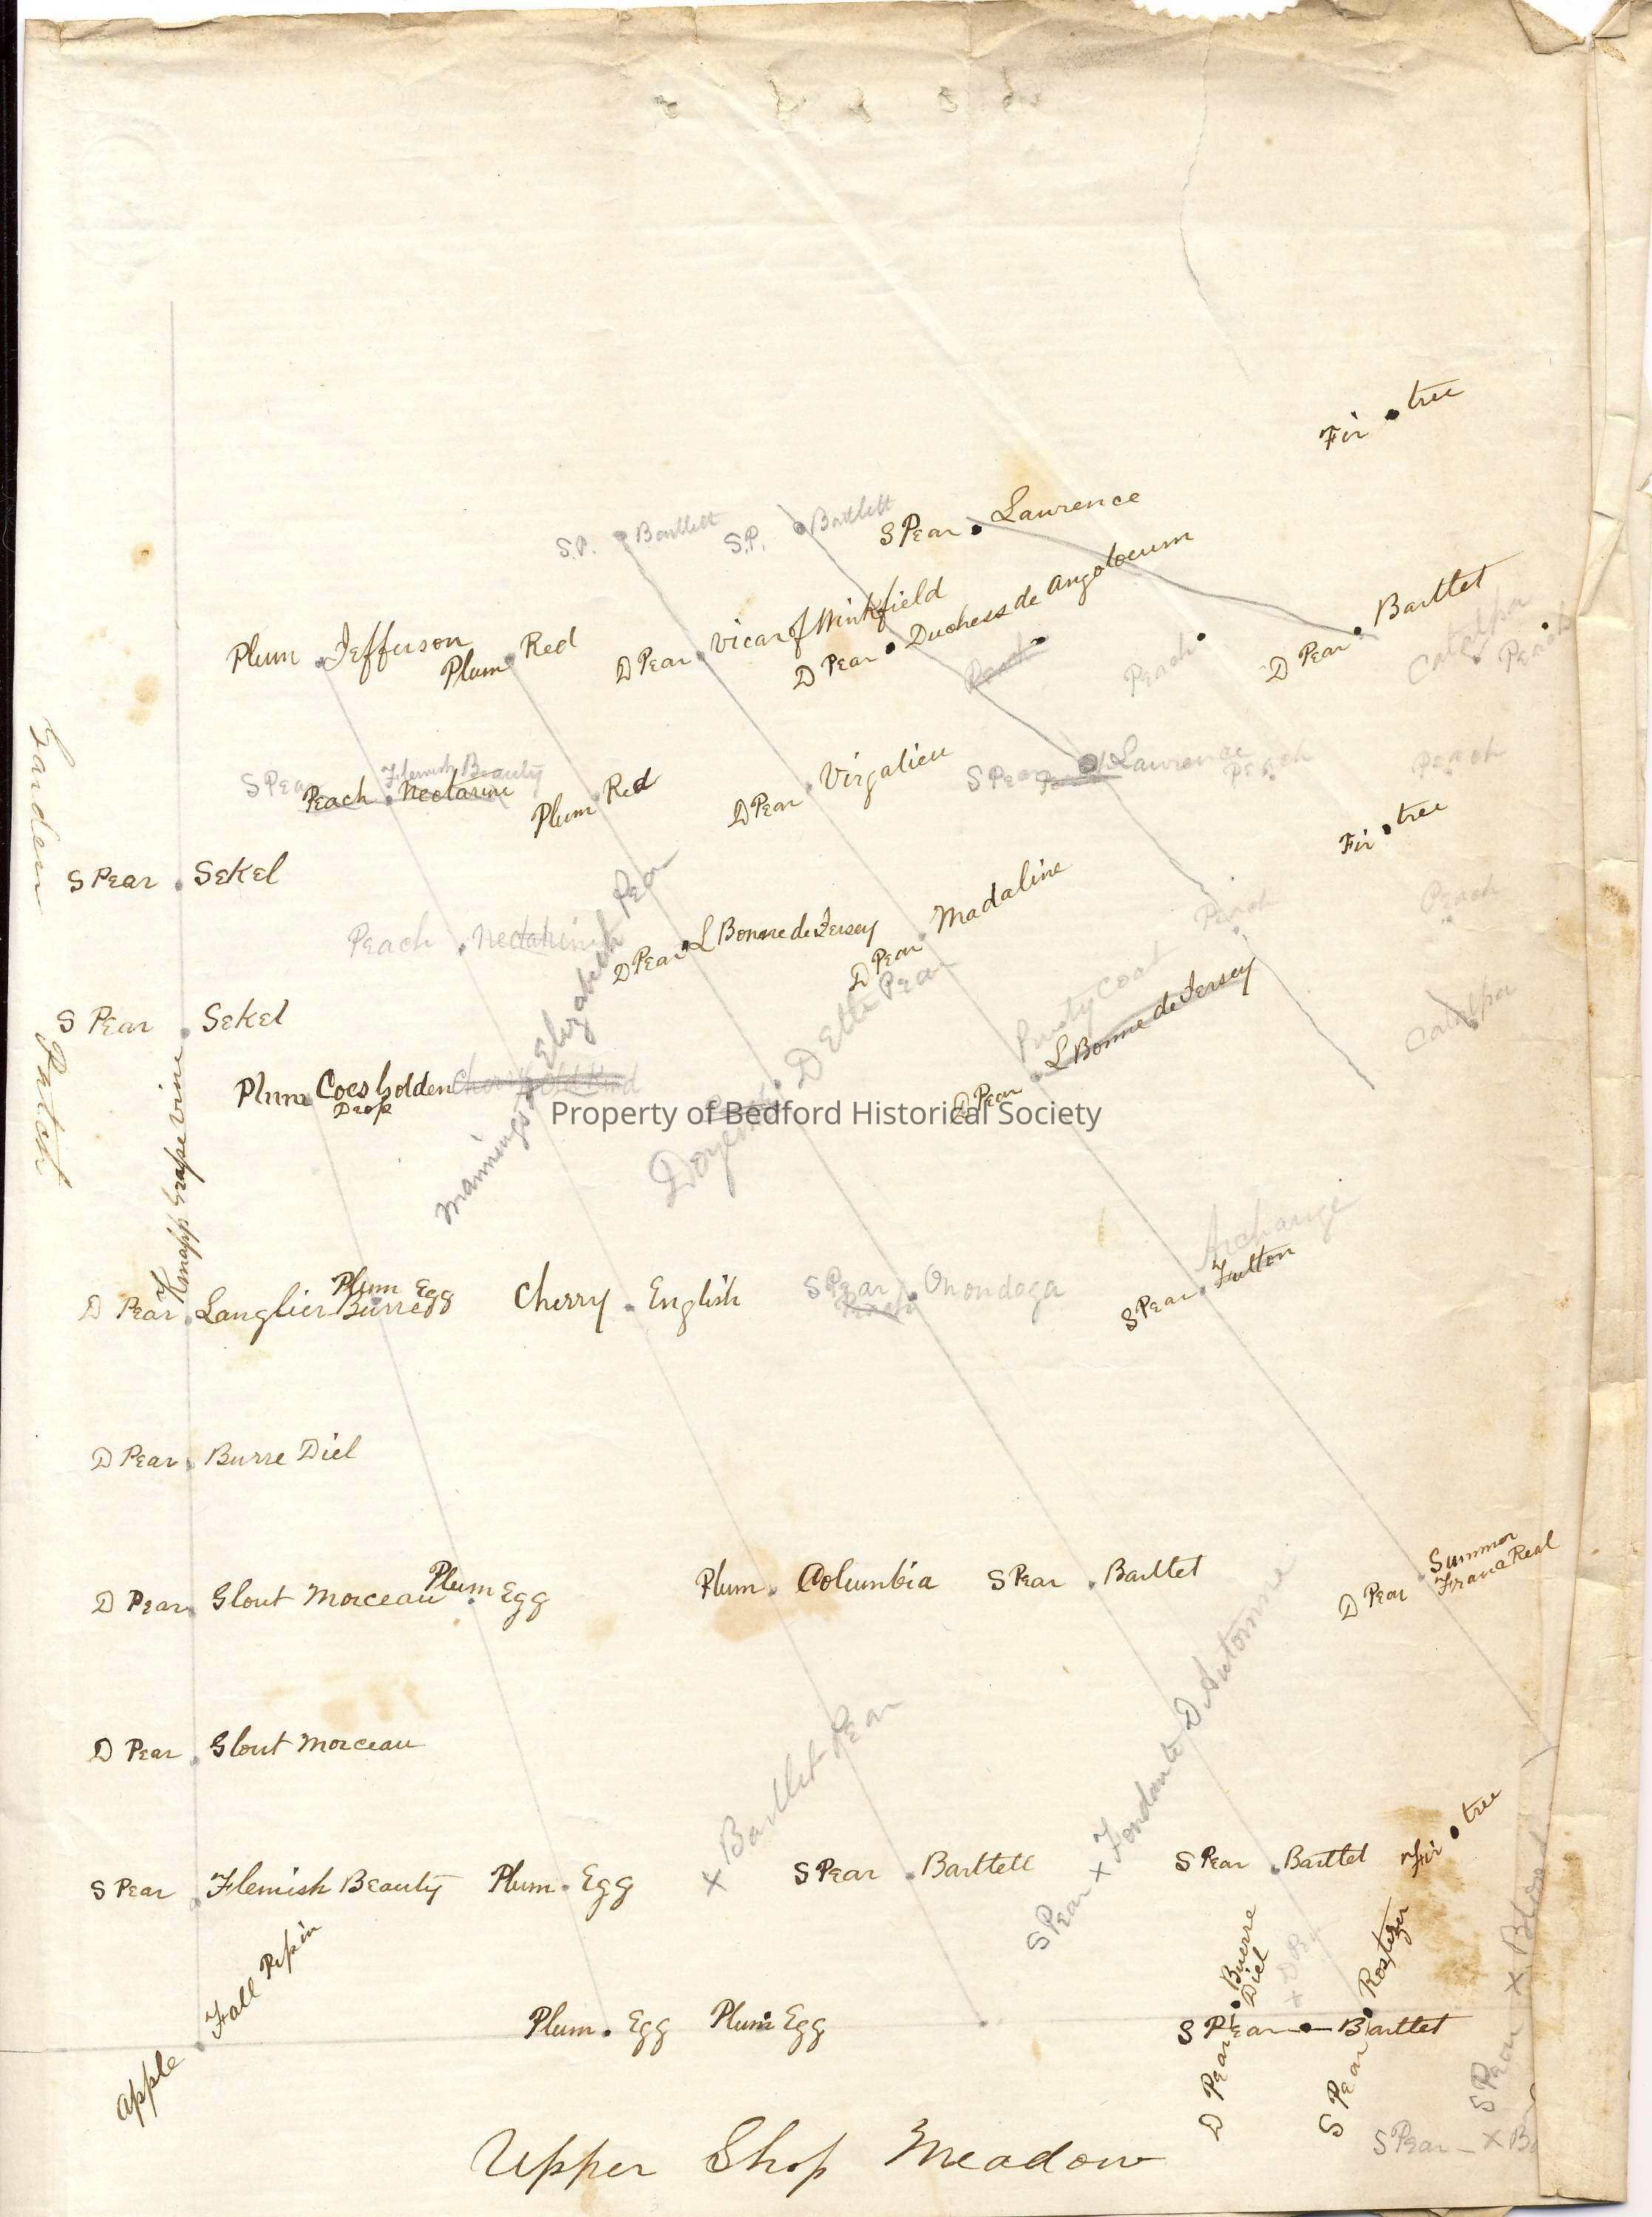 Fir . tree
S.P. . Bartlett
S.P. . Bartlett
S Pear . Lawrence
Plum . Jefferson
Plum . Red
D Pear . Vicar of Winkfield
D Pear . Duchess de Angoloeum
Peach .
D Pear . Bartlet
Catalpa
Peach
S Pear Flemish Beauty
Peach . Nectarine
Plum . Red
D Pear . Virgalieu
S Pear Lawrence
Peach
Peach
Fir . tree
Garden Patch
S Pear . Sekel
Peach . Nectarine
Mannings Elizabeth Pear
D Pear . L Bonne de Jersey
D Pear . Madaline
Peach
Peach
S Pear . Sekel
Plum . Coes Golden
Drop
D Pear . L Bonne de Jersey
Catalpa
Property of Bedford Historical Society
Knapp Grape vine
D Pear . Langlier Burre
Plum Egg
Cherry . English
S Pear . Onondaga
Archange
S Pear . Fulton
D Pear . Burre Diel
D Pear . Glout Morceau
Plum . Egg
Plum . Columbia
S Pear . Bartlet
D Pear . Summer
Franc Real
D Pear . Glout Morceau
x Bartlet Pear
S Pear x Fondante D Automne
S Pear . Flemish Beauty
Plum . Egg
S Pear . Bartlett
S Pear . Bartlet
Fir . tree
Apple . Fall Pipin
Plum . Egg
Plum Egg
S Pear . Bartlet
D Pear . Buerre
Diel
S Pear . Rostezer
S Pear x
S Pear - x
Upper Shop Meadow